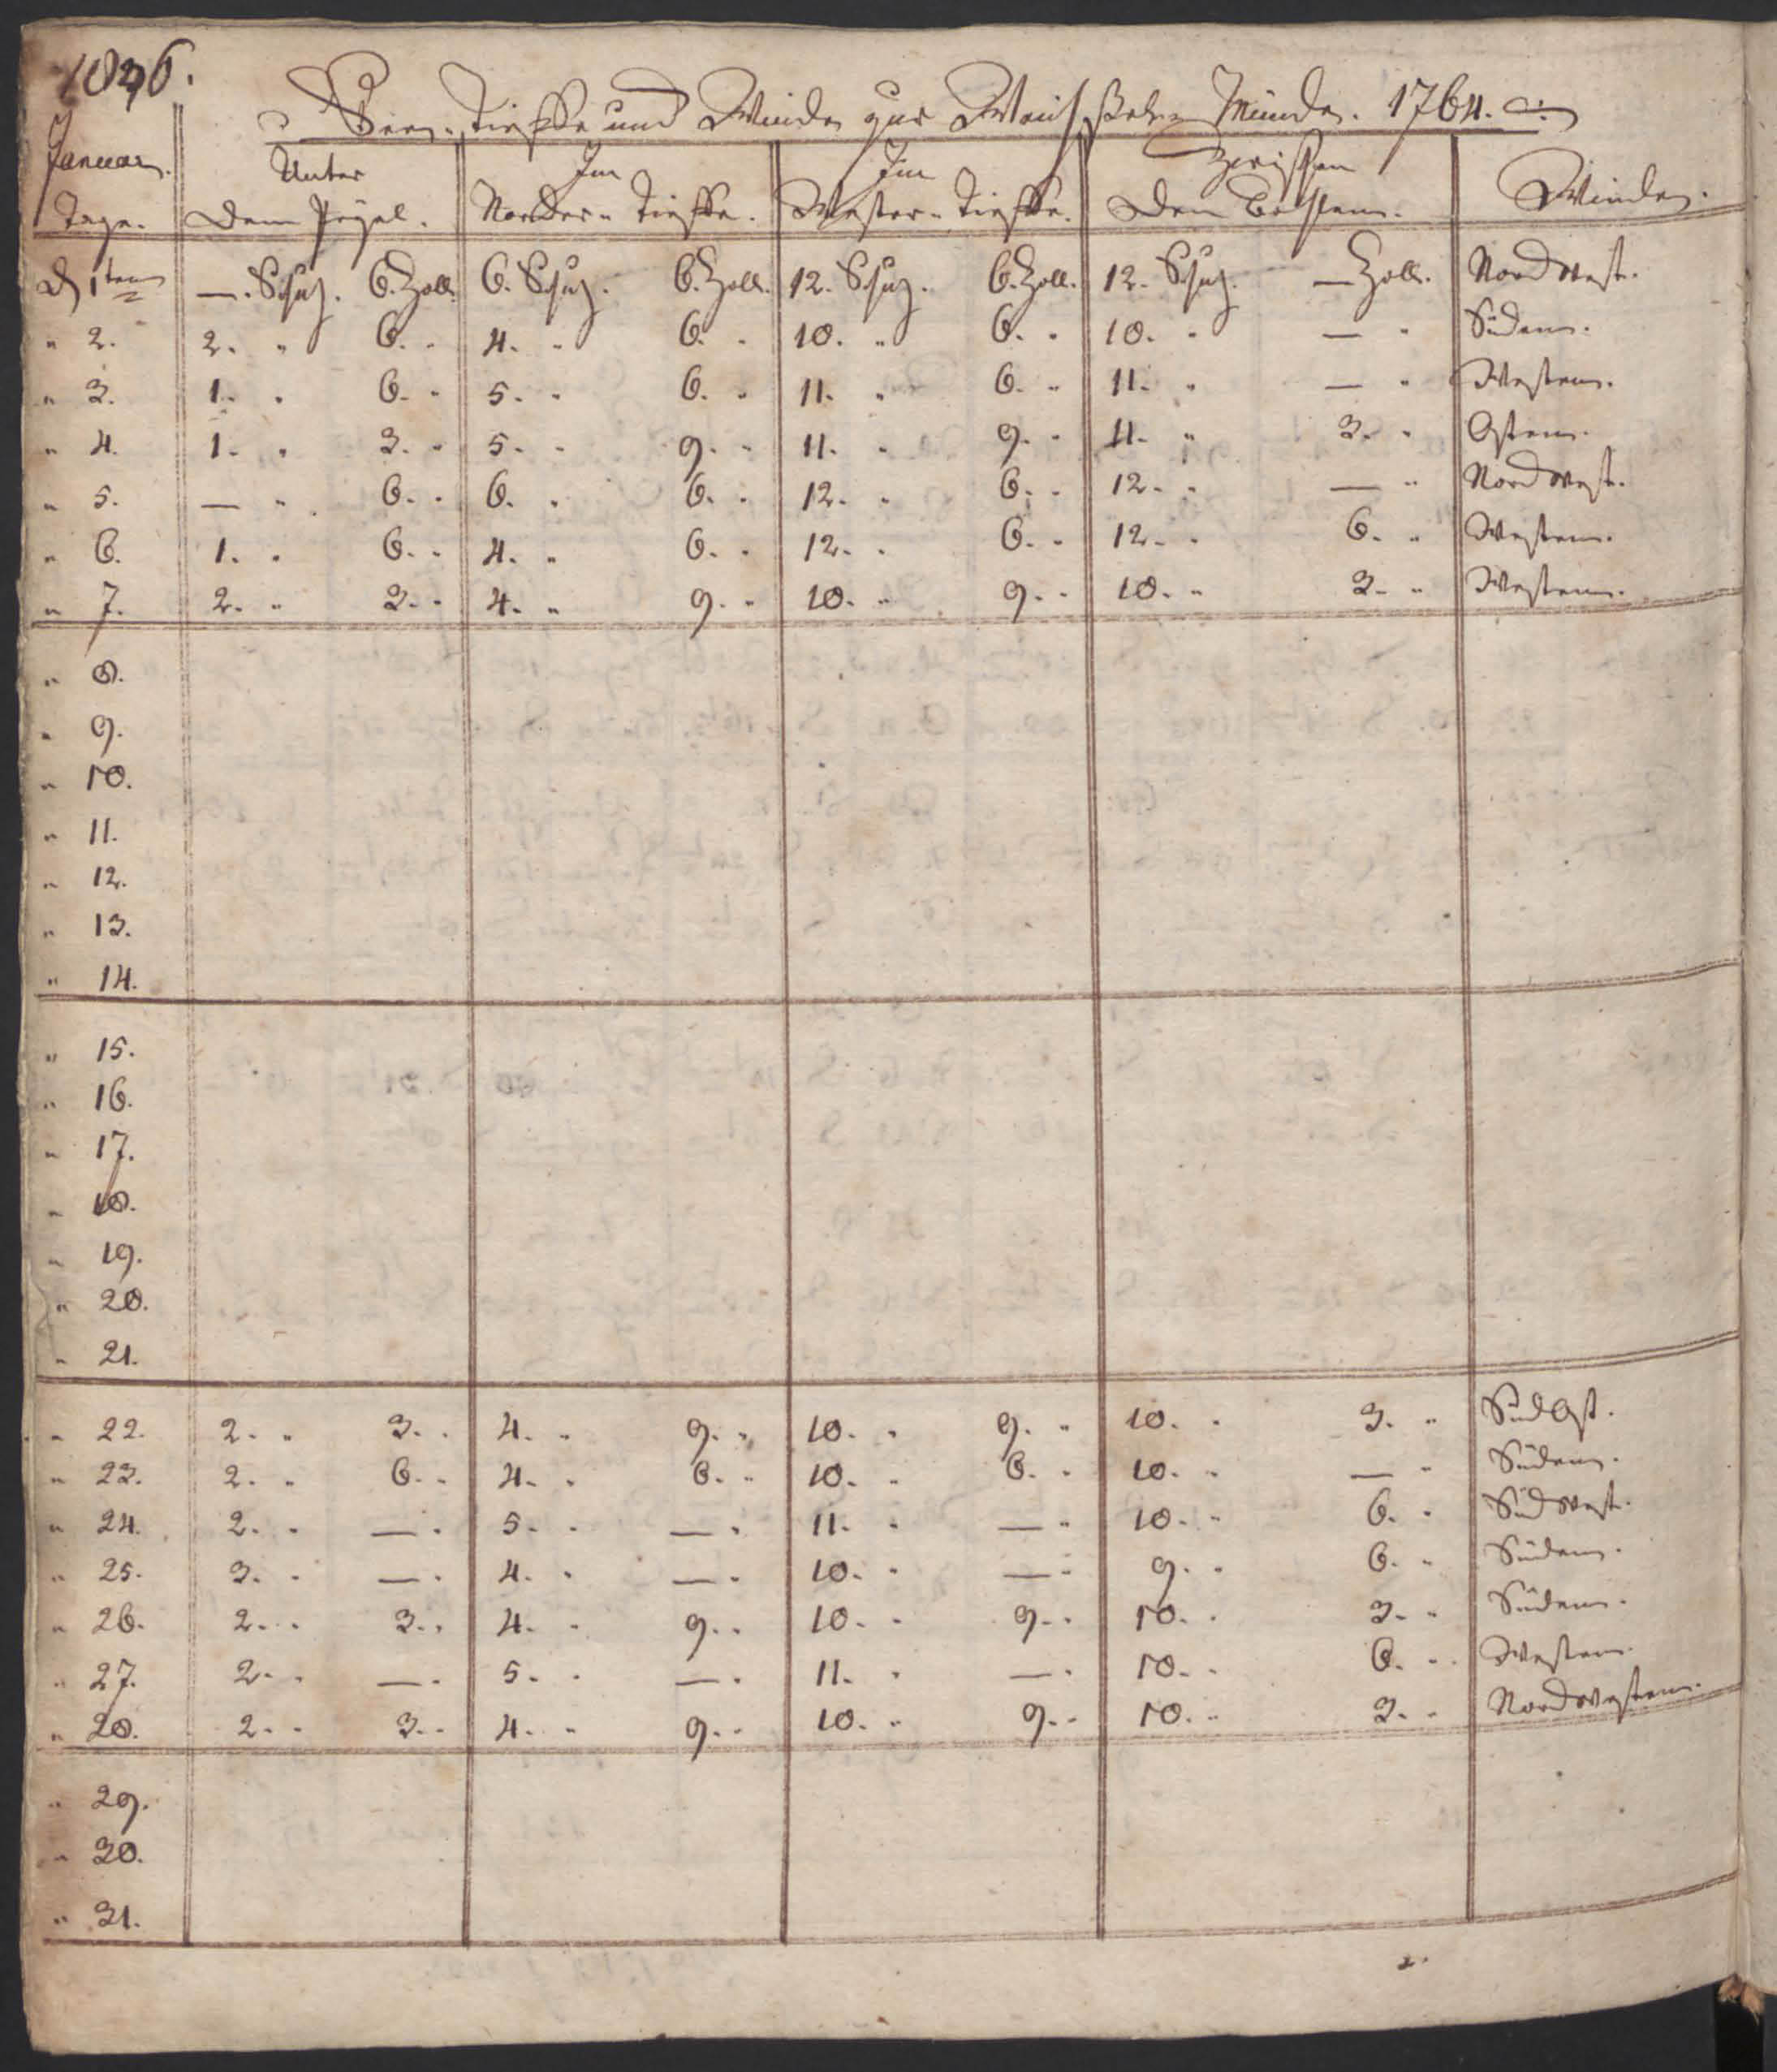 1026.
See-Tieffe und Winde zur Weichsel-Münde. 1764.
Januar. Unter Im Im Zwischen Winde.
Tage. Dem Pegel. Norder-Tieffe. Wester-Tieffe. Den
D 1ten —. Schuh. 6. Zoll. 6. Schuh. 6. Zoll. 12. Schuh. 6. Zoll. 12. Schuh. — Zoll. Nordwest.
" 2. 2. " 6. " 4. " 6. " 10. " 6. " 10. " — " Süden.
" 3. 1. " 6. " 5. " 6. " 11. " 6. " 11. " — " Westen.
" 4. 1. " 3. " 5. " 9. " 11. " 9. " 11. " 3. " Osten.
" 5. — " 6. " 6. " 6. " 12. " 6. " 12. " — " Nordwest.
" 6. 1. " 6. " 4. " 6. " 12. " 6. " 12. " 6. " Westen.
" 7. 2. " 3. " 4. " 9. " 10. " 9. " 10. " 3. " Westen.
" 8.
" 9.
" 10.
" 11.
" 12.
" 13.
" 14.
" 15.
" 16.
" 17.
" 18.
" 19.
" 20.
" 21.
" 22. 2. " 3. " 4. " 9. " 10. " 9. " 10. " 3. " SüdOst.
" 23. 2. " 6. " 4. " 6. " 10. " 6. " 10. " — " Süden.
" 24. 2. " — " 5. " — " 11. " — " 10. " 6. " Südwest.
" 25. 3. " — " 4. " — " 10. " — " 9. " 6. " Süden.
" 26. 2. " 3. " 4. " 9. " 10. " 9. " 10. " 3. " Süden.
" 27. 2. " — " 5. " — " 11. " — " 10. " 6. " Westen.
" 28. 2. " 3. " 4. " 9. " 10. " 9. " 10. " 3. " Nordwesten.
" 29.
" 30.
" 31.